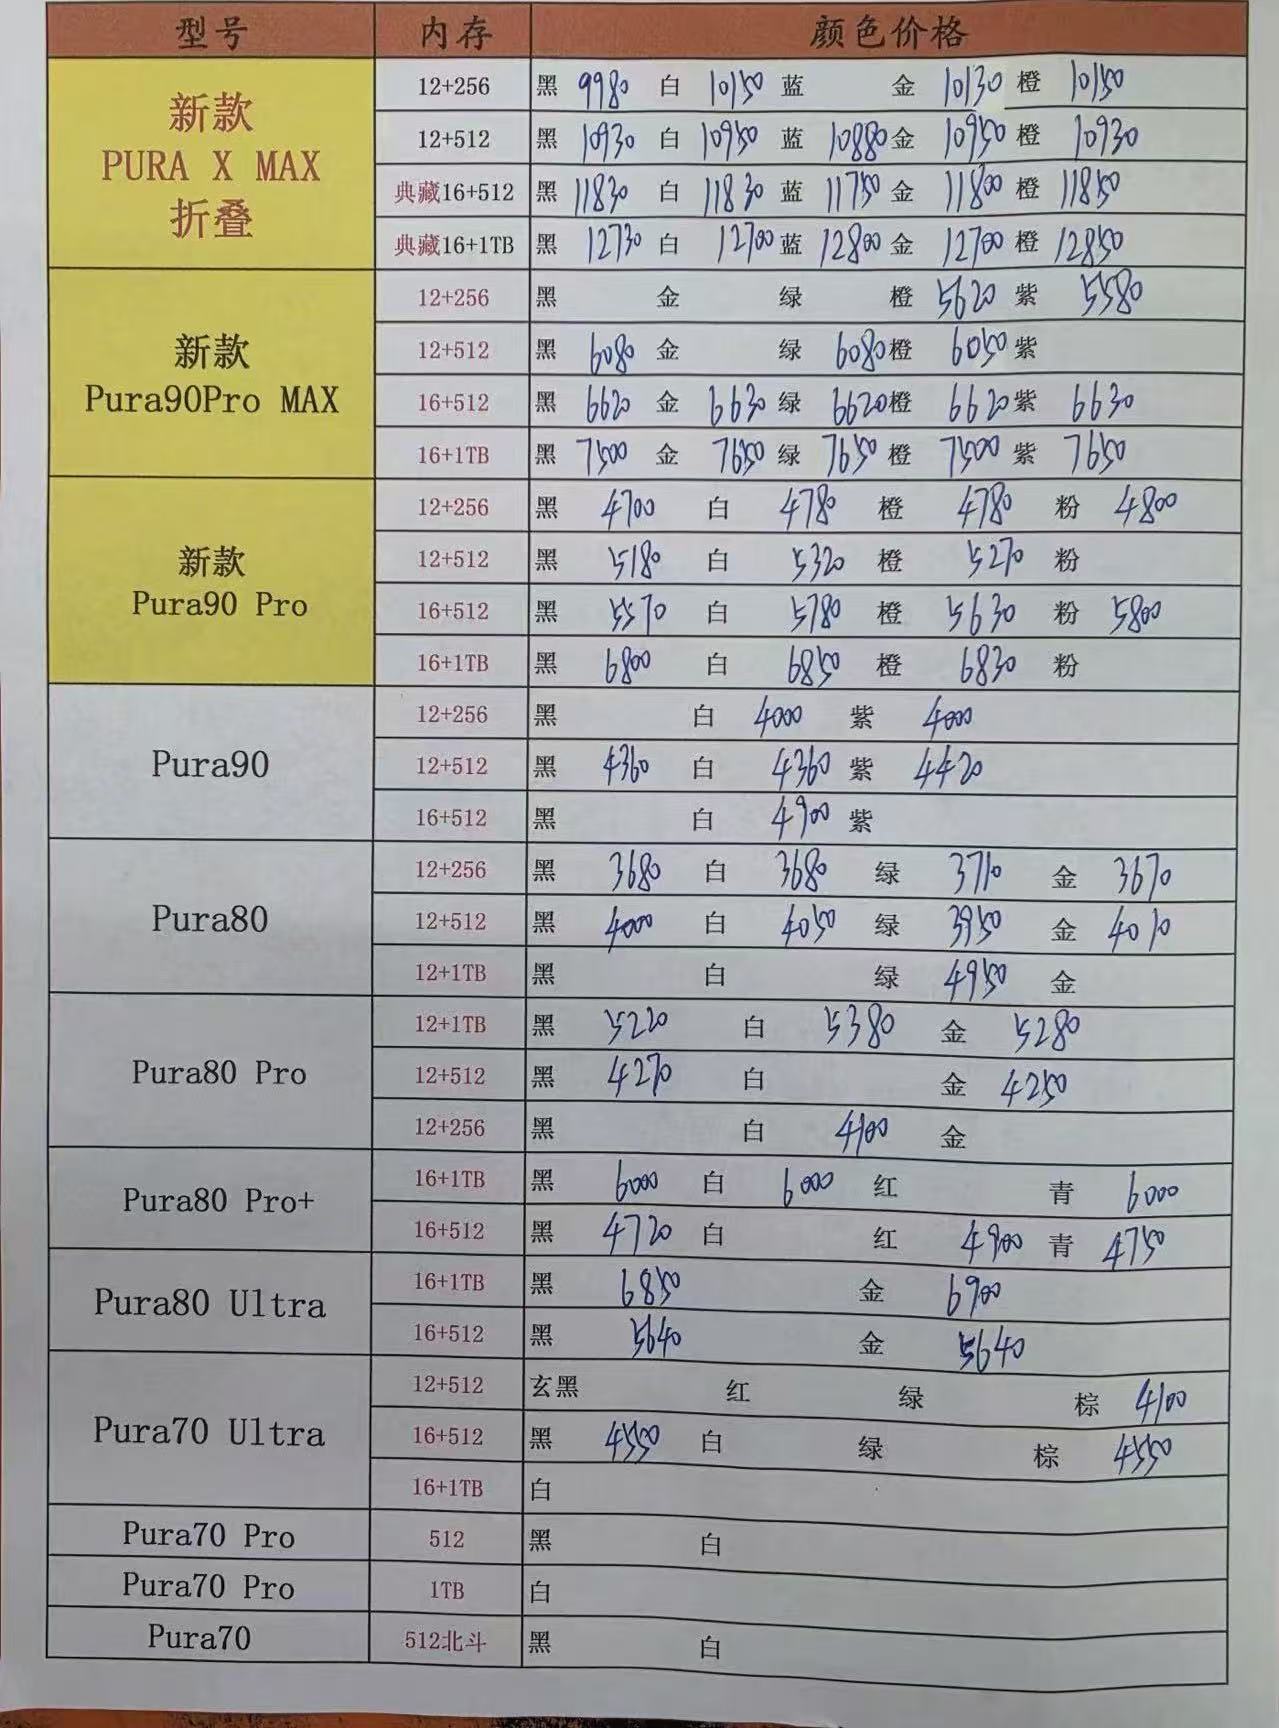 型号 内存 颜色价格
新款 PURA X MAX 折叠
12+256 黑 9980 白 10150 蓝 金 10130 橙 10150
12+512 黑 10930 白 10950 蓝 10880 金 10950 橙 10930
典藏16+512 黑 11830 白 11830 蓝 11750 金 11800 橙 11850
典藏16+1TB 黑 12730 白 12700 蓝 12800 金 12700 橙 12850
新款 Pura90Pro MAX
12+256 黑 金 绿 橙 5620 紫 5580
12+512 黑 6080 金 绿 6080 橙 6050 紫
16+512 黑 6620 金 6630 绿 6620 橙 6620 紫 6630
16+1TB 黑 7500 金 7650 绿 7650 橙 7500 紫 7650
新款 Pura90 Pro
12+256 黑 4700 白 4780 橙 4780 粉 4800
12+512 黑 5180 白 5320 橙 5270 粉
16+512 黑 5570 白 5780 橙 5630 粉 5800
16+1TB 黑 6800 白 6850 橙 6830 粉
Pura90
12+256 黑 白 4000 紫 4000
12+512 黑 4360 白 4360 紫 4420
16+512 黑 白 4900 紫
Pura80
12+256 黑 3680 白 3680 绿 3710 金 3670
12+512 黑 4000 白 4050 绿 3950 金 4010
12+1TB 黑 白 绿 4950 金
Pura80 Pro
12+1TB 黑 5220 白 5380 金 5280
12+512 黑 4270 白 金 4250
12+256 黑 白 4100 金
Pura80 Pro+
16+1TB 黑 6000 白 6000 红 青 6000
16+512 黑 4720 白 红 4900 青 4750
Pura80 Ultra
16+1TB 黑 6850 金 6900
16+512 黑 5640 金 5640
Pura70 Ultra
12+512 玄黑 红 绿 棕 4100
16+512 黑 4550 白 绿 棕 4550
16+1TB 白
Pura70 Pro 512 黑 白
Pura70 Pro 1TB 白
Pura70 512北斗 黑 白